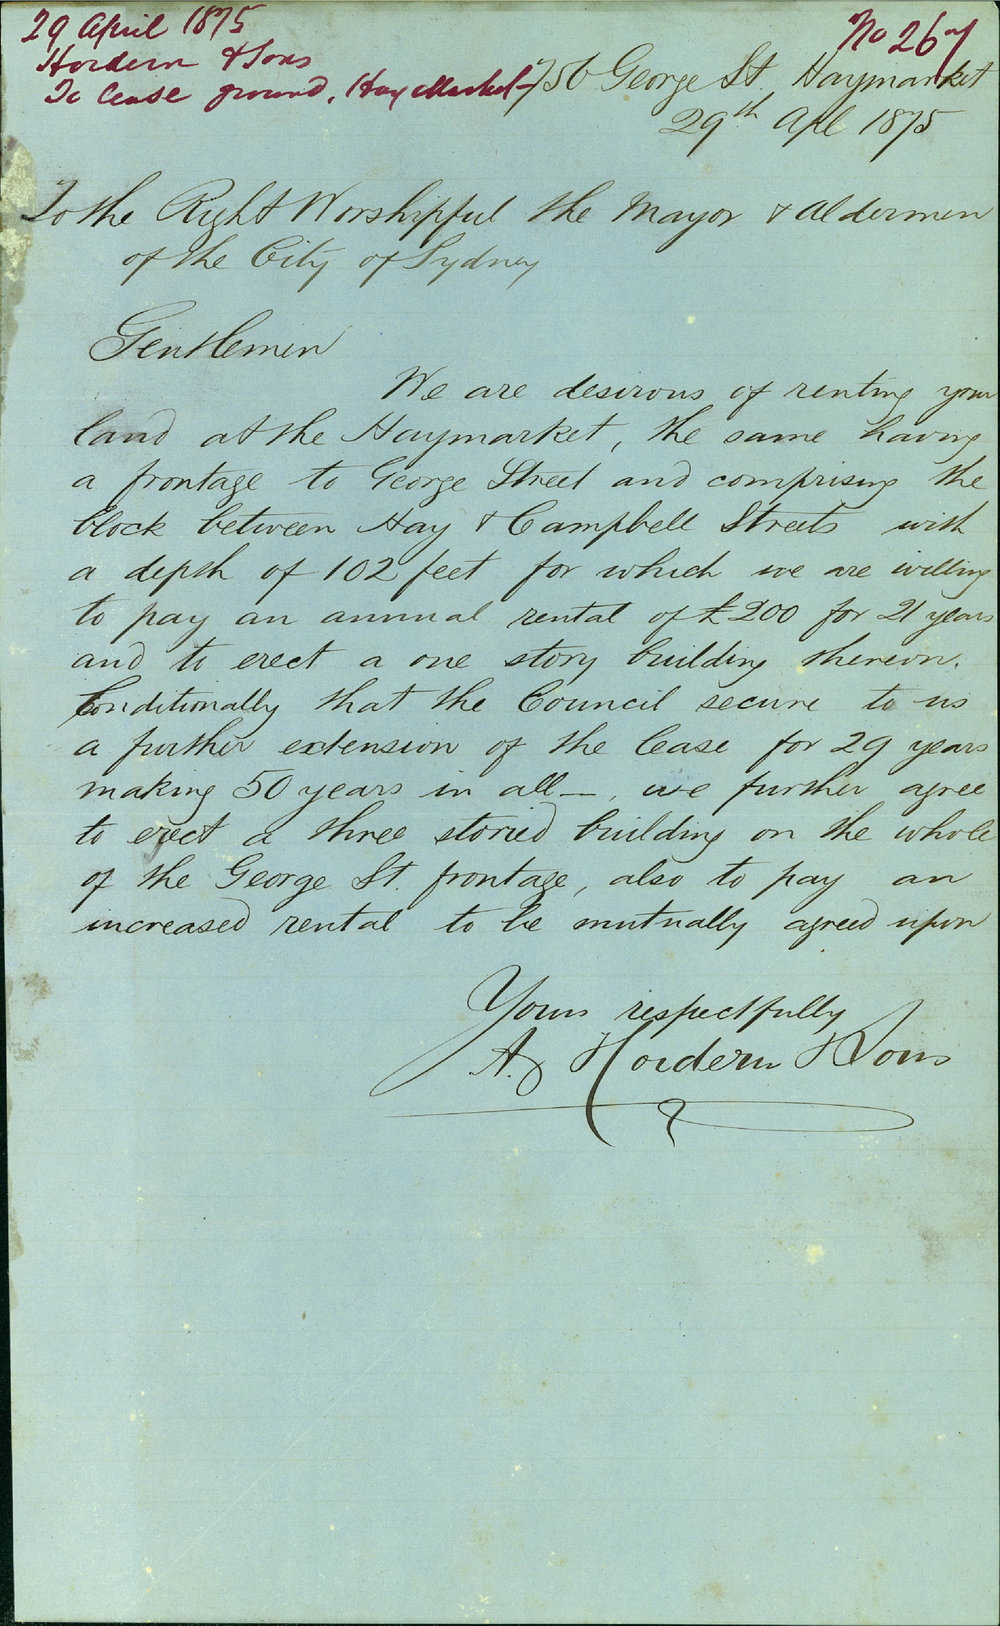 29 April 1875
Hordern & Sons
To lease ground, Hay Market
No 267
756 George St. Haymarket
29th Apl 1875
To the Right Worshipful the Mayor & Aldermen
of the City of Sydney
Gentlemen
We are desirous of renting your
land at the Haymarket, the same having
a frontage to George Street and comprising the
block between Hay & Campbell Streets with
a depth of 102 feet for which we are willing
to pay an annual rental of £200 for 21 years
and to erect a one story building thereon.
Conditionally that the Council secure to us
a further extension of the lease for 29 years
making 50 years in all —, we further agree
to erect a three storied building on the whole
of the George St. frontage, also to pay an
increased rental to be mutually agreed upon
Yours respectfully
A. Hordern & Sons